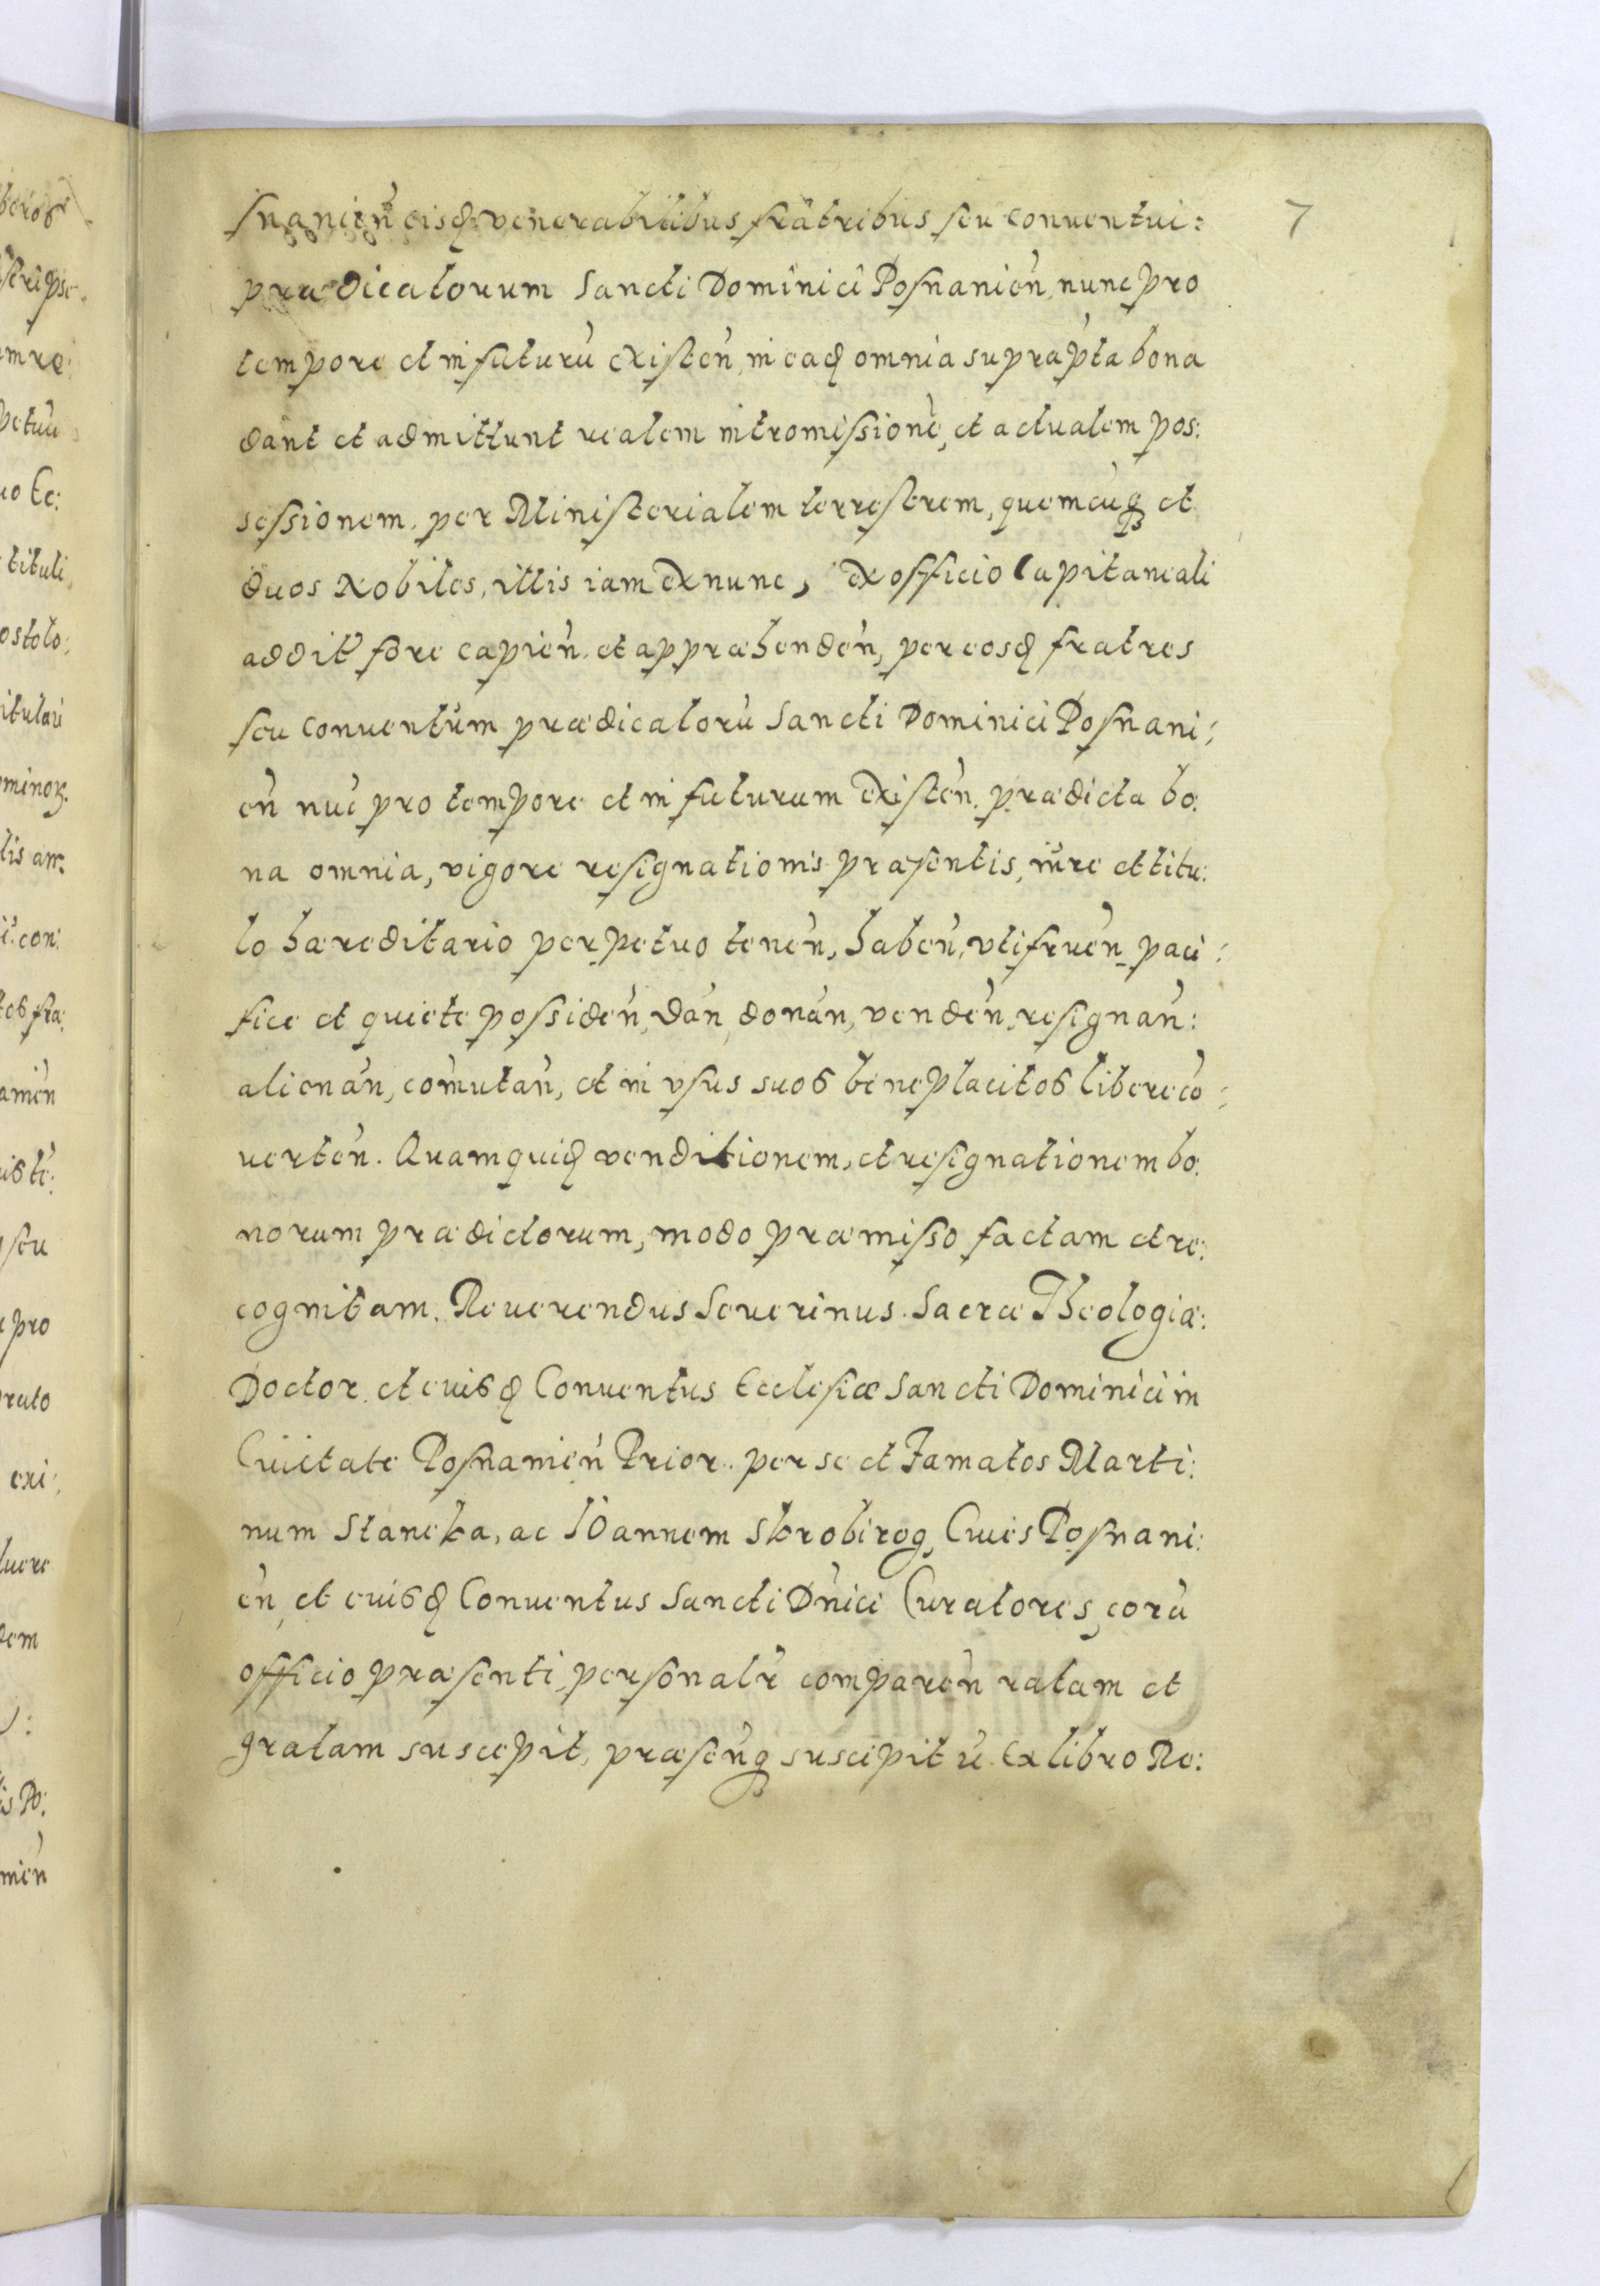 7
snanien̄ eisdꝫ venerabilibus fratribus seu conuentui:
prædicatorum Sancti Dominici Posnanien̄, nunc pro
tempore et in futurū existen̄, in eadꝫ omnia suprapta bona
dant et admittunt realem intromissionē, et actualem pos:
sessionem. per Ministerialem terrestrem, quemcūqꝫ et
duos Nobiles, illis iam ex nunc, ex officio Capitaneali
addit̄ fore capien̄. et appræhenden̄, per eosdꝫ fratres
seu conuentum prædicatorū Sancti Dominici Posnani:
en̄ nūc pro tempore et in futurum existen̄. prædicta bo:
na omnia, vigore resignationis præsentis, iure et titu:
lo hæreditario perpetuo tenen̄, haben̄, vtifruen̄ paci:
fice et quiete possiden̄, dan̄, donan̄, venden̄, resignan̄:
alienan̄, cōmutan̄, et in vsus suos beneplacitos libere cō:
uerten̄. Quamquidꝫ venditionem, et resignationem bo:
norum prædictorum, modo præmisso factam et re:
cognitam. Reuerendus Seuerinus. Sacræ Theologiæ:
Doctor. et euisdꝫ Conuentus Ecclesiæ Sancti Dominici in
Ciuitate Posnanien̄ Prior. per se et Famatos Marti:
num Stancka, ac IOannem Skrobirog, Ciues Posnani:
en̄, et euisdꝫ Conuentus Sancti Dn̄ici Curatores, corā
officio præsenti, personalr̄ comparen̄ ratam et
gratam suscepit, præsen̄qꝫ suscipit ū. Ex libro Re: